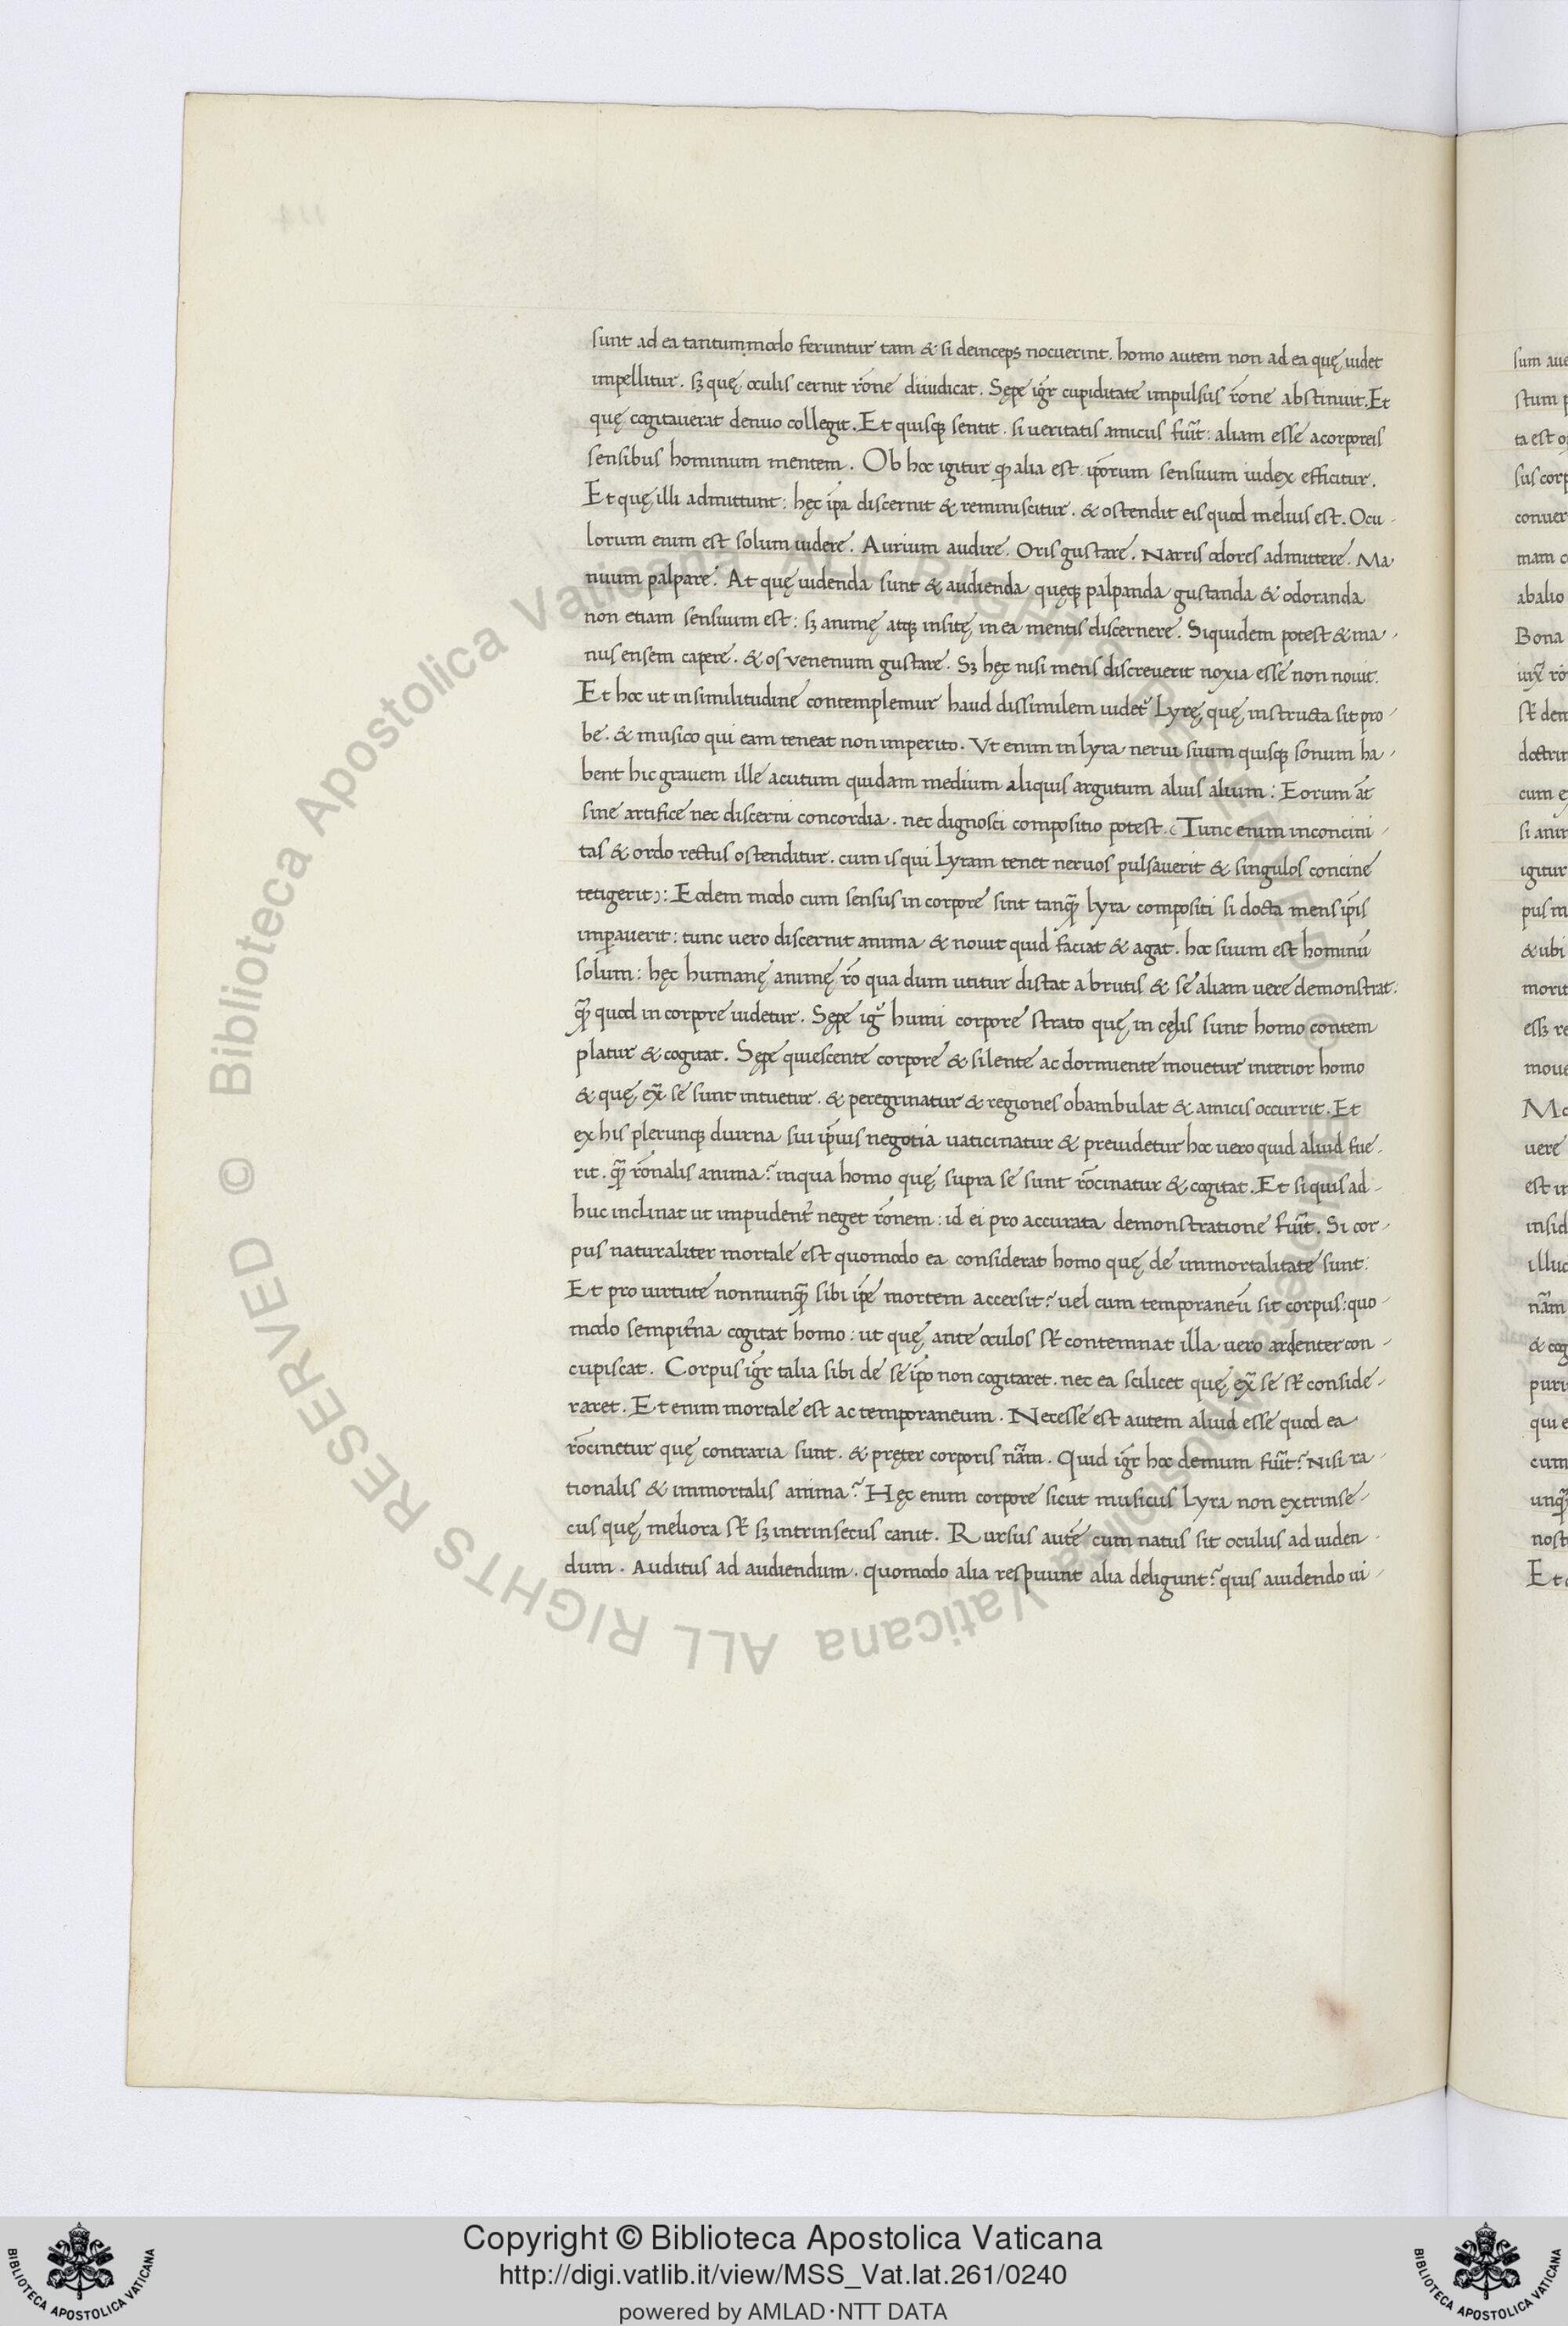 sunt ad ea tantummodo feruntur tam & si deinceps nocuerint. homo autem non ad ea quę uidet
impellitur. sꝫ quę oculis cernit rōne diiudicat. Sępe igr̄ cupiditate impulsus rōne abstinuit. Et
quę cogitauerat denuo collegit. Et quisqꝫ sentit. si ueritatis amicus fuīt: aliam esse acorporeis
sensibus hominum mentem. Ob hoc igitur ꝙ alia est ip̄orum sensuum iudex efficitur.
Et quę illi admittunt: hęc ip̄a discernit & reminiscitur. & ostendit eis quod melius est. Ocu-
lorum enim est solum uidere. Aurium audire. Oris gustare. Narris odores admittere. Ma-
nuum palpare. At quę uidenda sunt & audienda quęqꝫ palpanda gustanda & odoranda
non etiam sensuum est: sꝫ animę atqꝫ insitę in ea mentis discernere. Siquidem potest & ma-
nus ensem capere. & os venenum gustare. Sꝫ hęc nisi mens discreuerit noxia esse non nouit.
Et hoc ut insimilitudine contemplemur haud dissimilem uidet᷑ Lyrę quę instructa sit pro-
be. & musico qui eam teneat non imperito. Vt enim in lyra nerui suum quisqꝫ sonum ha-
bent hic grauem ille acutum quidam medium aliquis argutum alius alium: Eorum āt
sine artifice nec discerni concordia. nec dignosci compositio potest. (Tunc enim inconcini-
tas & ordo rectus ostenditur. cum is qui Lyram tenet neruos pulsauerit & singulos concine
tetigerit): Eodem modo cum sensus in corpore sint tanꝗ̄ lyra compositi si docta mens ip̄is
imꝑauerit: tunc uero discernit anima & nouit quid faciat & agat. hoc suum est hominū
solum: hęc humanę animę rō qua dum utitur distat abrutis & se aliam uere demonstrat:
ꝗ̄ quod in corpore uidetur. Sępe ig᷑ humi corpore strato quę in cęlis sunt homo contem
platur & cogitat. Sępe quiescente corpore & silente ac dormiente mouetur interior homo
& quę ex̄ se sunt intuetur. & peregrinatur & regiones obambulat & amicis occurrit. Et
ex his plerunqꝫ diurna sui ip̄ius negotia uaticinatur & preuidetur hoc uero quid aliud fue-
rit. ꝗ̄ rōnalis anima? inqua homo quę supra se sunt rōcinatur & cogitat. Et si quis ad-
huc inclinat ut impudent᷑ neget rōnem: id ei pro accurata demonstratione fuīt. Si cor-
pus naturaliter mortale est quomodo ea considerat homo quę de immortalitate sunt:
Et pro uirtute nonnunꝗ̄ sibi ip̄e mortem accersit? uel cum temporaneū sit corpus: quo-
modo sempit᷑na cogitat homo: ut quę ante oculos st̄ contemnat illa uero ardenter con-
cupiscat. Corpus igr̄ talia sibi de se ip̄o non cogitaret. nec ea scilicet quę ex̄ se st̄ conside-
raret. Et enim mortale est ac temporaneum. Necesse est autem aliud esse quod ea
rōcinetur quę contraria sunt. & pręter corporis nām. Quid igr̄ hoc demum fuīt? Nisi ra-
tionalis & immortalis anima? Hęc enim corpore sicut musicus Lyra non extrinse-
cus quę meliora st̄ sꝫ intrinsecus canit. Rursus autē cum natus sit oculus ad uiden-
dum. Auditus ad audiendum. quomodo alia respuunt alia deligunt? quis auidendo ui-
Copyright © Biblioteca Apostolica Vaticana
http://digi.vatlib.it/view/MSS_Vat.lat.261/0240
powered by AMLAD·NTT DATA